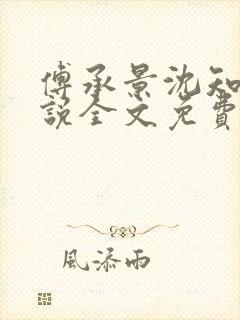 傅承景沈知
說全文免費
風添雨